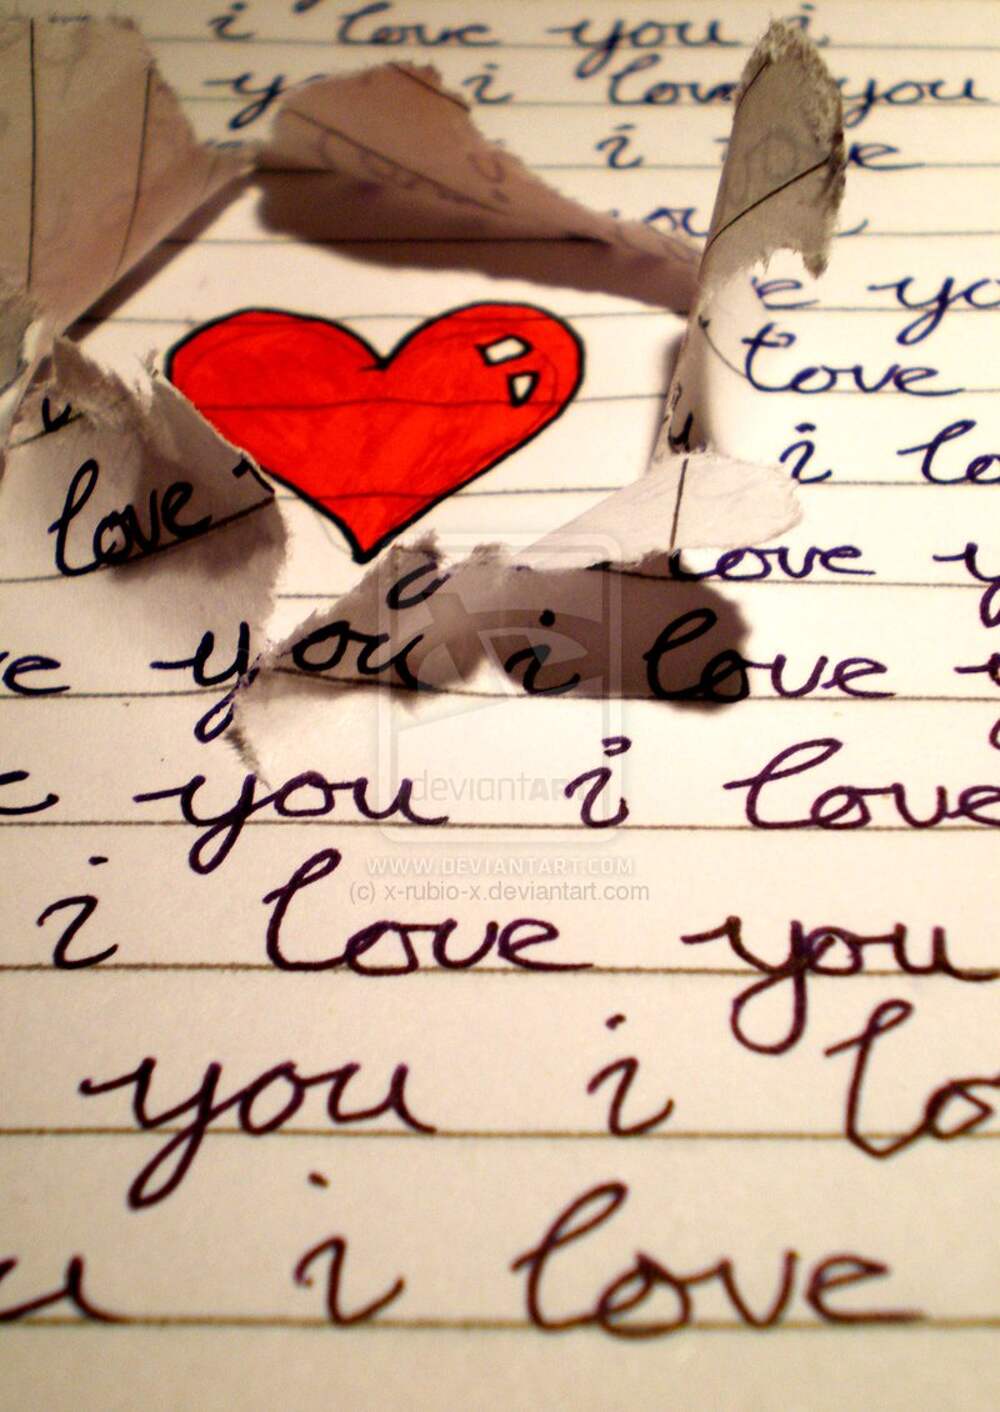 i love you i
i love you
i
you
yo
love
i lo
love i
love y
you i love y
you i love
i love you
you i lo
i love
deviantART
WWW.DEVIANTART.COM
(c) x-rubio-x.deviantart.com